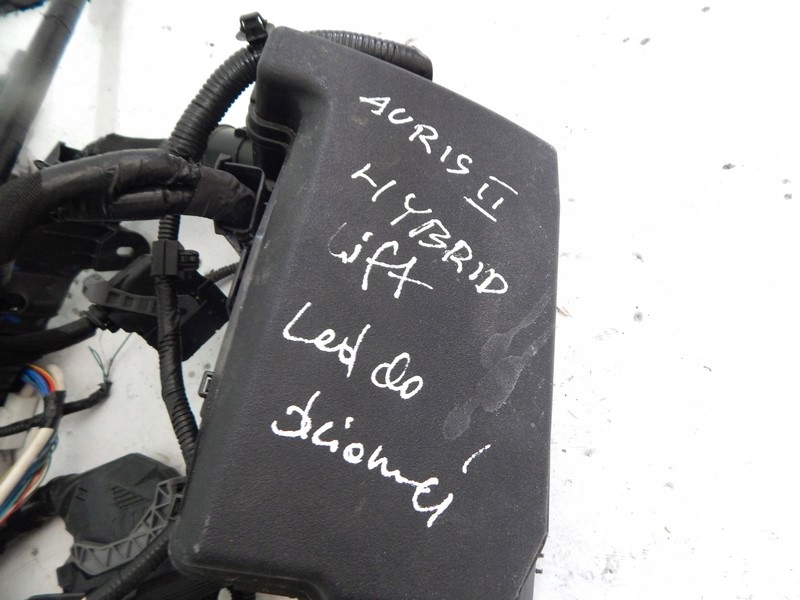 AURIS II
HYBRID
lift
Led do